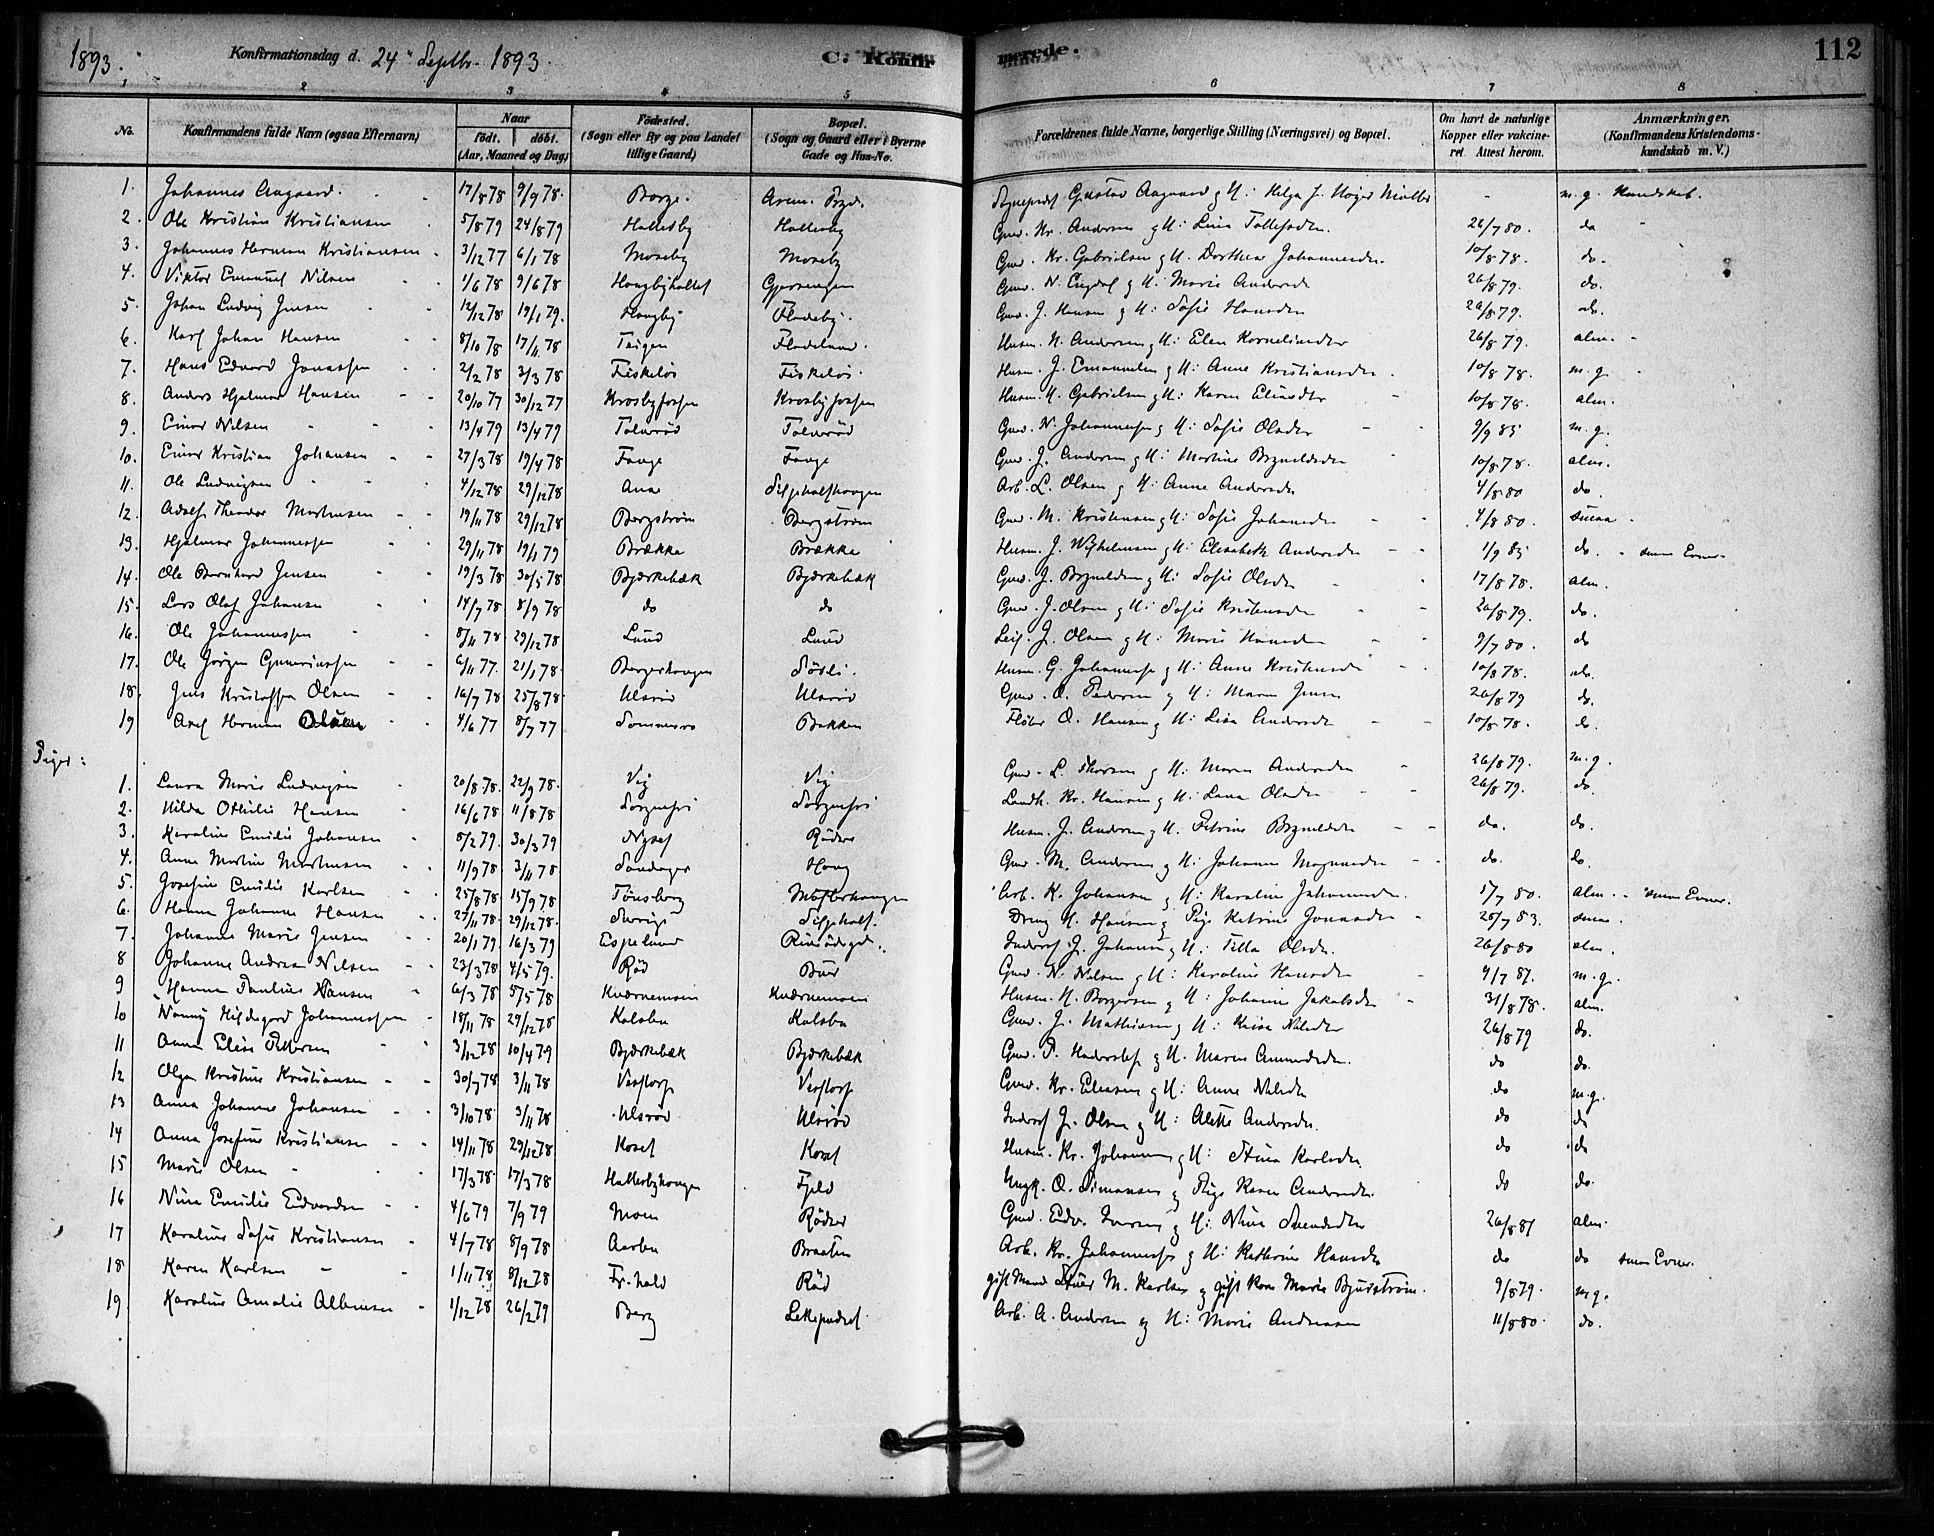 1893. Konfirmationsdag d. 24de Septbr. 1893. C. Konfirmerede. 112
1 2 3 4 5 6 7 8
No. Konfirmandens fulde Navn (ogsaa Efternavn) Naar født. døbt. (Aar, Maaned og Dag) Fødested. (Sogn eller By og paa Landet tillige Gaard) Bopæl. (Sogn og Gaard eller i Byerne Gade og Hus-No. Forældrenes fulde Navne, borgerlige Stilling (Næringsvei) og Bopæl. Om havt de naturlige Kopper eller vakcineret. Attest herom. Anmærkninger. (Konfirmandens Kristendomskundskab m. V.)
1. Johannes Aagaard. 17/8 78 9/9 78. Borge. Gustav Aagaard og H: Helga J. Høyer Møller - m. g. Kundskab.
2. Ole Kristian Kristiansen 5/8 79 24/8 79 Hallesby Hallesby Gmd. Kr. Andersen og H: Lina Tollefsdtr. 26/7 80. do
3. Johannes Herman Kristiansen 3/12 77 6/1 78 Moseby Moseby Gmd. Kr. Gabrielsen og H: Dorthea Johannesdtr. 10/8 78. do.
4. Viktor Emanuel Nilsen 1/6 78 9/6 78 Gmd. N. og H: Marie Andersdtr 26/8 79. do.
5. Johan Ludvig Jensen 12/12 78 19/1 79. Haugby Fladeby. Gmd. J. Hansen og H: Sofie Hansdtr 26/8 79. do.
6. Karl Johan Hansen 8/10 78 17/11 78 Teigen Fladeland. Husm. H. Andersen og H: Elen Kornelisdtr 26/8 79. alm.
7. Hans Edvard Jonassen 2/2 78 3/3 78 Fiskeløs Fiskeløs. Husm. J. Emanuelsen og H: Anne Kristiansdtr. 10/8 78. m. g.
8. Anders Hjalmar Hansen 20/10 77 30/12 77 Krosbyfossen Krosbyfossen Husm. H. Gabrielsen og H: Karen Eliasdtr 10/8 78. alm.
9. Einar Nilsen 13/4 79 13/4 79 Gmd. N. Johannessen og H: Sofie Olsdtr 9/9 85 m. g.
10. Einar Kristian Johansen 27/3 78 19/4 78 Fange Fange Gmd. J. Andersen og H: Martine Brynildsdtr 10/8 78. alm.
11. Ole Ludvigsen 4/12 78 29/12 78 Arb. L. Olsen og H: Anne Andersdtr 4/8 80 do.
12. Adolf Theodor Martinsen 19/11 78 29/12 78 Bergstrøm Bergstrøm Gmd. M. Kristensen og H: Sofie Johansdtr 4/8 80. smaa
13. Hjalmar Johannessen 29/11 78 19/1 79 Brække Brække Husm. J. Wilhelmsen og H: Elisabeth Andersdtr 1/9 85 do. smaa Evner.
14. Ole Bernhard Jensen 19/3 78 30/5 78 Bjørkebæk Bjørkebæk Gmd. J. Brynildsen og H: Sofie Olsdtr 17/8 78. alm.
15. Lars Olaf Johansen 14/7 78 8/9 78 do do Gmd. J. Olsen og H: Sofie Kristensdtr 26/8 79. do.
16. Ole Johannessen 8/11 78 29/12 78 Lund Lund Leil. J. Olsen og H: Marie Hansdtr 9/7 80. do
17. Ole Jørgen Gunerinssen 6/11 77. 21/1 78. Bergerhaugen Husm. G. Johannessen og H: Anne Kristensdtr 10/8 78. do.
18. Jens Kristoffer Olsen 16/7 78 25/8 78 Ulsrød Ulsrød Gmd. O. Pedersen og H: Maren Jensen 26/8 79 do.
19 Axel Herman Olsen 4/6 77 8/7 77 Sommero Bakken Fløter O. Hansen og H: Lisa Andersdtr 10/8 78. do.
Piger:
1. Laura Marie Ludvigsen 20/8 78. 22/9 78. Vig Vig Gmd. L. Thorsen og H: Maren Andersdtr 26/8 79. m. g.
2. Hilda Othilie Hansen 16/6 78 11/8 78 Sorgenfri Sorgenfri Landh. Kr. Hansen og H: Lena Olsdtr 26/8 79. do.
3. Karoline Emilie Johansen 8/2 79. 30/3 79 Rødsø Husm. J. Andersen og H. Petrine Brynildsdtr do. do.
4. Anne Martine Martinsen 11/9 78 3/11 78. Haug Gmd. M. Andersen og H: Johanne Magnusdtr do. do.
5. Josefine Emilie Karlsen 25/8 78 15/9 78 Tønsberg Arb. K. Johansen og H: Karoline Johannesdtr. 1/7 80. alm. smaa Evner.
6. Hanna Johanne Hansen 25/11 78. 29/12 78. Sverige Dreng H. Hansen og Pige Katrine Jonasdtr 25/7 83. smaa
7. Johanne Marie Jensen 20/1 79. 16/3 79 Espelund Inderst J. Johansen og H: Tilla Olsdtr. 26/8 80 alm.
8 Johanne Andrea Nilsen 23/3 78 4/5 79. Rød Buer Gmd. N. Nilsen og H: Karoline Hansdtr 9/7 87. m. g.
9 Hanna Pauline Hansen 6/3 78 5/5 78 Kværnemoin Kværnemoin Husm. H. Borgersen og H: Johanne Jakobsdtr 31/8 78. alm.
10 Nanny Hildegard Johannessen 18/11 78 29/12 78 Kalsbu Kalsbu Gmd. J. Mathisen og H: Kaisa Nilsdtr 26/8 79 do.
11 Anna Elise Pettersen 3/12 78 10/4 79 Bjørkebæk Bjørkebæk Gmd. P. og H. Maren do do.
12 Olga Kristine Kristiansen 30/7 78 3/11 78 Vestorp Vestorp Gmd. Kr. Eliasen og H: Anne Nilsdtr do m. g.
13 Anna Johanne Johansen 3/10 78 3/11 78 Ulsrød Ulsrød Inderst J. Olsen og H: Alette Andersdtr. do do
14 Anna Josefine Kristiansen 14/11 78 29/12 78 Koset Koset Husm. Kr. Johannsen og H: Stina Karlsdtr. do do
15 Marie Olsen 17/3 78. 17/3 78 Hallesbyhaugen Fjeld Ungk. O. Simonsen og Pige Karen Andersdtr. do do.
16 Nina Emilie Edvardsen 4/6 79 7/9 79 Moen Rødsø Gmd. Edv. Iversen og H: Nina Svendsdtr 26/8 81 alm.
17 Karoline Sofie Kristiansen 4/7 78 8/9 78 Aarbu Braaten Arb. Kr. Johannessen og H: Kathrine Hansdtr do do smaa Evner.
18 Karen Karlsen 1/11 78 8/12 78 Fr.hald Rød gift Mand M. Karlsen og gift Kone Marie Bjurstrøm. 9/8 79. m. g.
19. Karoline Amalie Albinsen 1/12 78 26/2 79 Berg Arb. A. Andersen og H: Marie Andreasen 11/8 80. do.